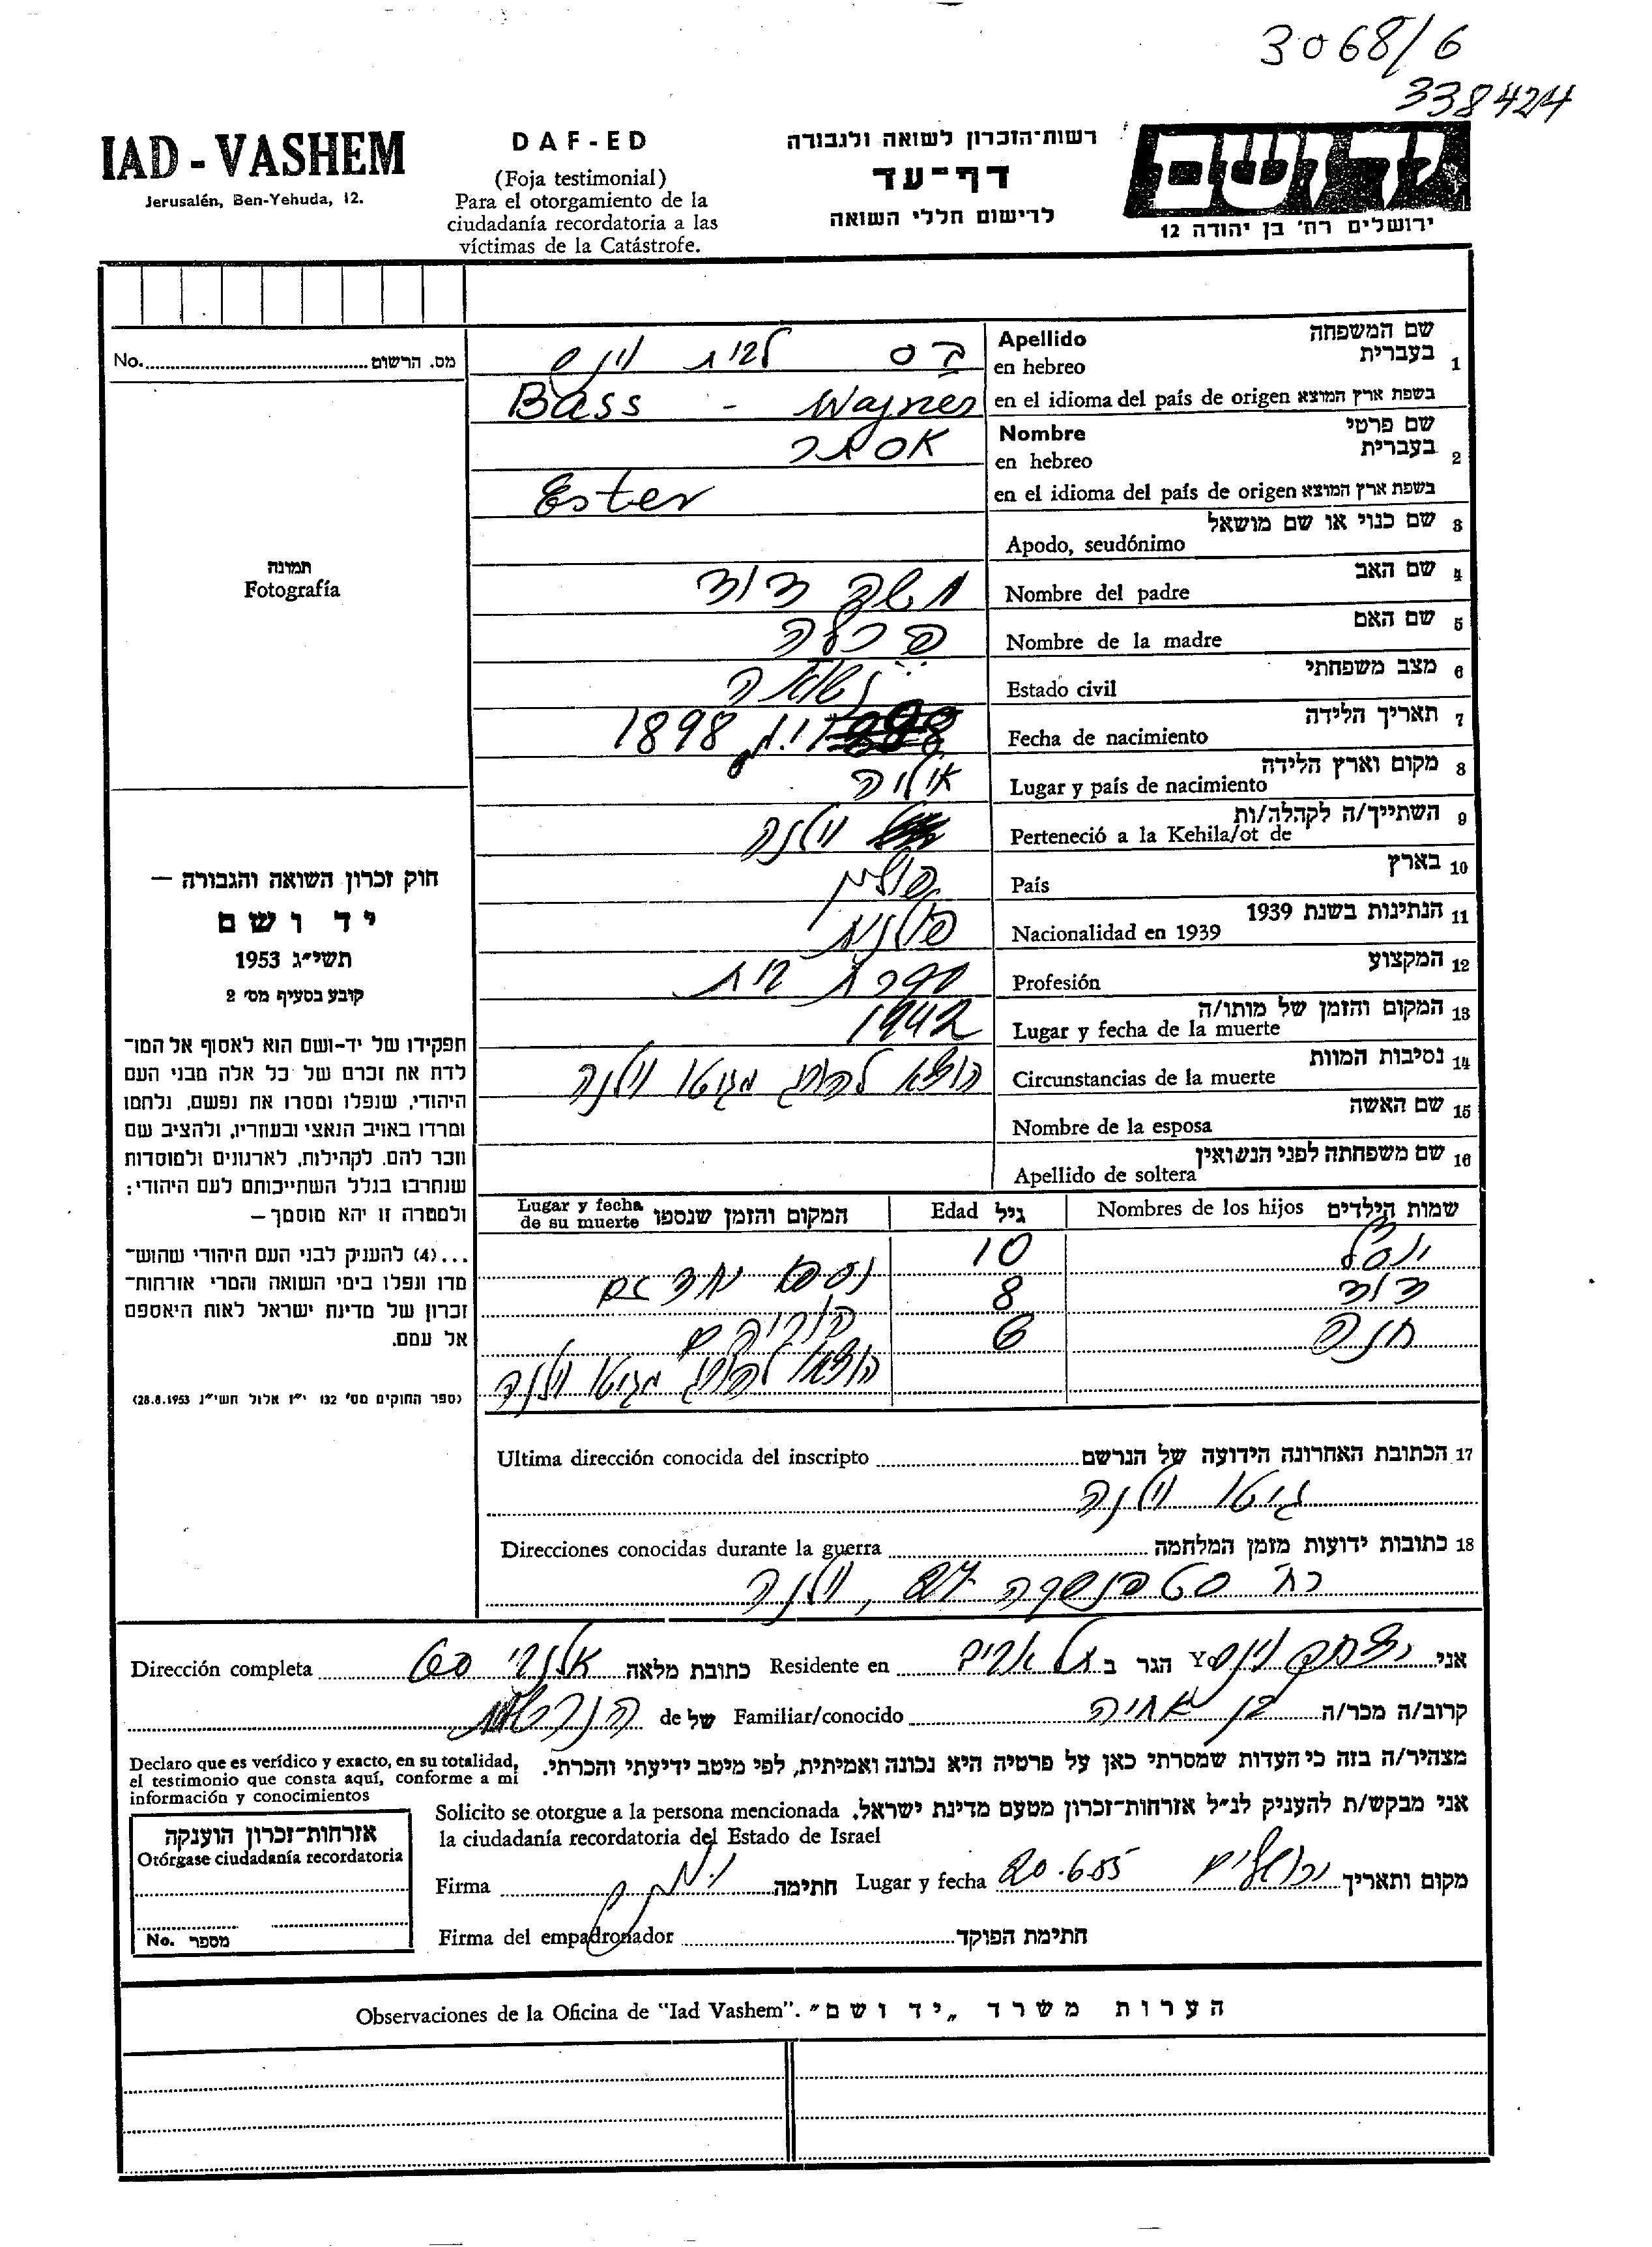 3068/6
338424
IAD - VASHEM
Jerusalén, Ben-Yehuda, 12.
DAF-ED
(Foja testimonial)
Para el otorgamiento de la
ciudadanía recordatoria a las
víctimas de la Catástrofe.
רשות-הזכרון לשואה ולגבורה
דף-עד
לרישום חללי השואה
יד ושם
ירושלים רח' בן יהודה 12
No. מס. הרשום
תמונה
Fotografía
חוק זכרון השואה והגבורה —
יד ושם
תשי״ג 1953
קובע בסעיף מס׳ 2
תפקידו של יד-ושם הוא לאסוף אל המו־
לדת את זכרם של כל אלה מבני העם
היהודי, שנפלו ומסרו את נפשם, נלחמו
ומרדו באויב הנאצי ובעוזריו, ולהציב שם
וזכר להם. לקהילות, לארגונים ולמוסדות
שנחרבו בגלל השתייכותם לעם היהודי:
ולמטרה זו יהא מוסמך—
...(4) להעניק לבני העם היהודי שהוש־
מדו ונפלו בימי השואה והמרי אזרחות־
זכרון של מדינת ישראל לאות היאספם
אל עמם.
(ספר החוקים מס׳ 132 י״ז אלול תשי״ג 28.8.1953)
1 שם המשפחה Apellido
בעברית en hebreo בס לבית וינס
בשפת ארץ המוצא en el idioma del país de origen Bass - Wajnes
2 שם פרטי Nombre
בעברית en hebreo אסתר
בשפת ארץ המוצא en el idioma del país de origen Ester
3 שם כנוי או שם מושאל
Apodo, seudónimo
4 שם האב
Nombre del padre משה דוד
5 שם האם
Nombre de la madre
6 מצב משפחתי
Estado civil נשואה
7 תאריך הלידה
Fecha de nacimiento 1898
8 מקום וארץ הלידה
Lugar y país de nacimiento
9 השתייך/ה לקהלה/ות
Perteneció a la Kehila/ot de וילנה
10 בארץ
País פולין
11 הנתינות בשנת 1939
Nacionalidad en 1939 פולנית
12 המקצוע
Profesión עקרת בית
13 המקום והזמן של מותו/ה
Lugar y fecha de la muerte 1942
14 נסיבות המוות
Circunstancias de la muerte הוצא להורג מגיטו וילנה
15 שם האשה
Nombre de la esposa
16 שם משפחתה לפני הנשואין
Apellido de soltera
שמות הילדים Nombres de los hijos גיל Edad המקום והזמן שנספו Lugar y fecha de su muerte
10
דוד 8 נספו יחד עם
חנה 6 הוריהם
הוצאו להורג מגיטו וילנה
17 הכתובת האחרונה הידועה של הנרשם Ultima dirección conocida del inscripto
גיטו וילנה
18 כתובות ידועות מזמן המלחמה Direcciones conocidas durante la guerra
רח' סטפנסקה וילנה
אני Yo יצחק וינס הגר ב Residente en תל אביב כתובת מלאה Dirección completa
קרוב/ה מכר/ה Familiar/conocido בן אחיה של de הנרשמת
מצהיר/ה בזה כי העדות שמסרתי כאן על פרטיה היא נכונה ואמיתית, לפי מיטב ידיעתי והכרתי.
Declaro que es verídico y exacto, en su totalidad,
el testimonio que consta aquí, conforme a mi
información y conocimientos
אני מבקש/ת להעניק לנ״ל אזרחות-זכרון מטעם מדינת ישראל. Solicito se otorgue a la persona mencionada
la ciudadanía recordatoria del Estado de Israel
מקום ותאריך ירושלים 20.6.55 Lugar y fecha חתימה Firma
חתימת הפוקד Firma del empadronador
אזרחות-זכרון הוענקה
Otórgase ciudadanía recordatoria
No. מספר
הערות משרד „יד ושם״ Observaciones de la Oficina de "Iad Vashem".